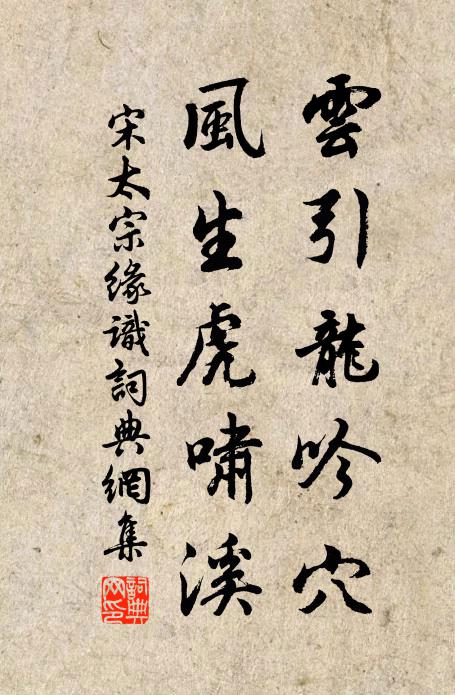 雲引龍吟穴
風生虎嘯溪
宋太宗緣識詞典網集
詞典網印